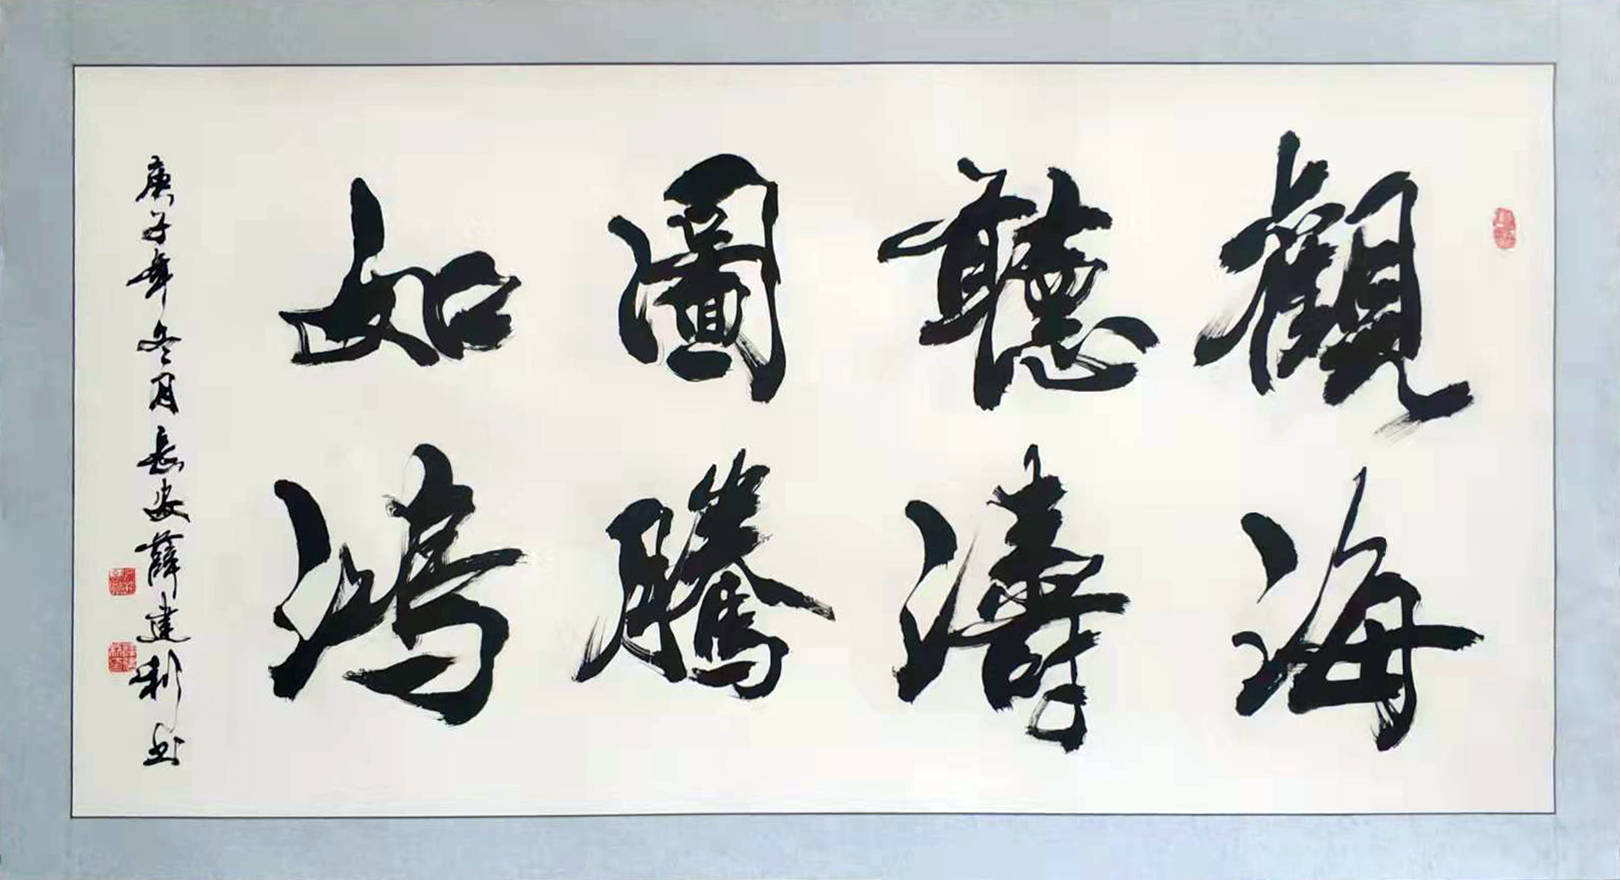 觀海
聽濤
圖騰
如鴻
庚子年冬月長安薛建利書